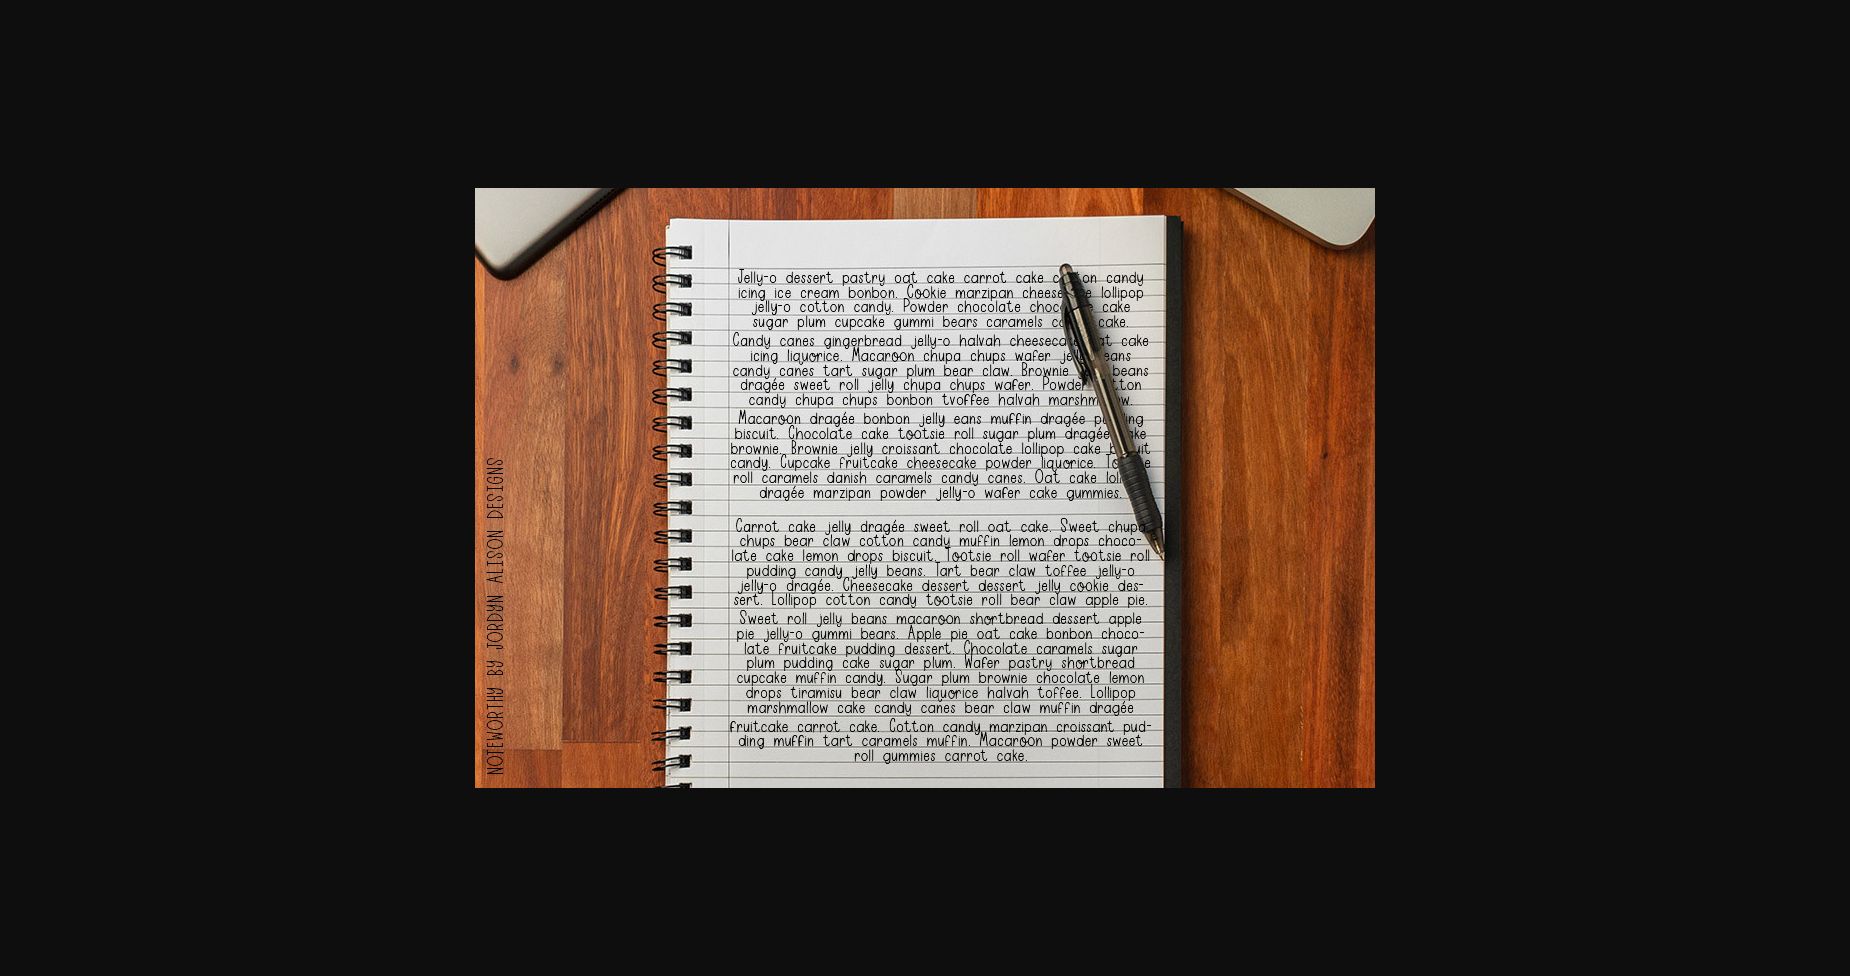 Jelly-o dessert pastry oat cake carrot cake candy
icing ice cream bonbon. Cookie marzipan lollipop
jelly-o cotton candy. Powder chocolate cake
sugar plum cupcake gummi bears caramels cake.
Candy canes gingerbread jelly-o halvah cake
icing liquorice. Macaroon chupa chups wafer
candy canes tart sugar plum bear claw. Brownie beans
dragée sweet roll jelly chupa chups wafer. Powder
candy chupa chups bonbon tvoffee halvah
Macaroon dragée bonbon jelly eans muffin dragée
biscuit. Chocolate cake tootsie roll sugar plum dragée
brownie. Brownie jelly croissant chocolate lollipop cake
candy. Cupcake fruitcake cheesecake powder liquorice.
roll caramels danish caramels candy canes. Oat cake
dragée marzipan powder jelly-o wafer cake gummies.
Carrot cake jelly dragée sweet roll oat cake. Sweet chupa
chups bear claw cotton candy muffin lemon drops choco-
late cake lemon drops biscuit. Tootsie roll wafer tootsie roll
pudding candy jelly beans. Tart bear claw toffee jelly-o
jelly-o dragée. Cheesecake dessert dessert jelly cookie des-
sert. Lollipop cotton candy tootsie roll bear claw apple pie.
Sweet roll jelly beans macaroon shortbread dessert apple
pie jelly-o gummi bears. Apple pie oat cake bonbon choco-
late fruitcake pudding dessert. Chocolate caramels sugar
plum pudding cake sugar plum. Wafer pastry shortbread
cupcake muffin candy. Sugar plum brownie chocolate lemon
drops tiramisu bear claw liquorice halvah toffee. Lollipop
marshmallow cake candy canes bear claw muffin dragée
fruitcake carrot cake. Cotton candy marzipan croissant pud-
ding muffin tart caramels muffin. Macaroon powder sweet
roll gummies carrot cake.
NOTEWORTHY BY JORDYN ALISON DESIGNS